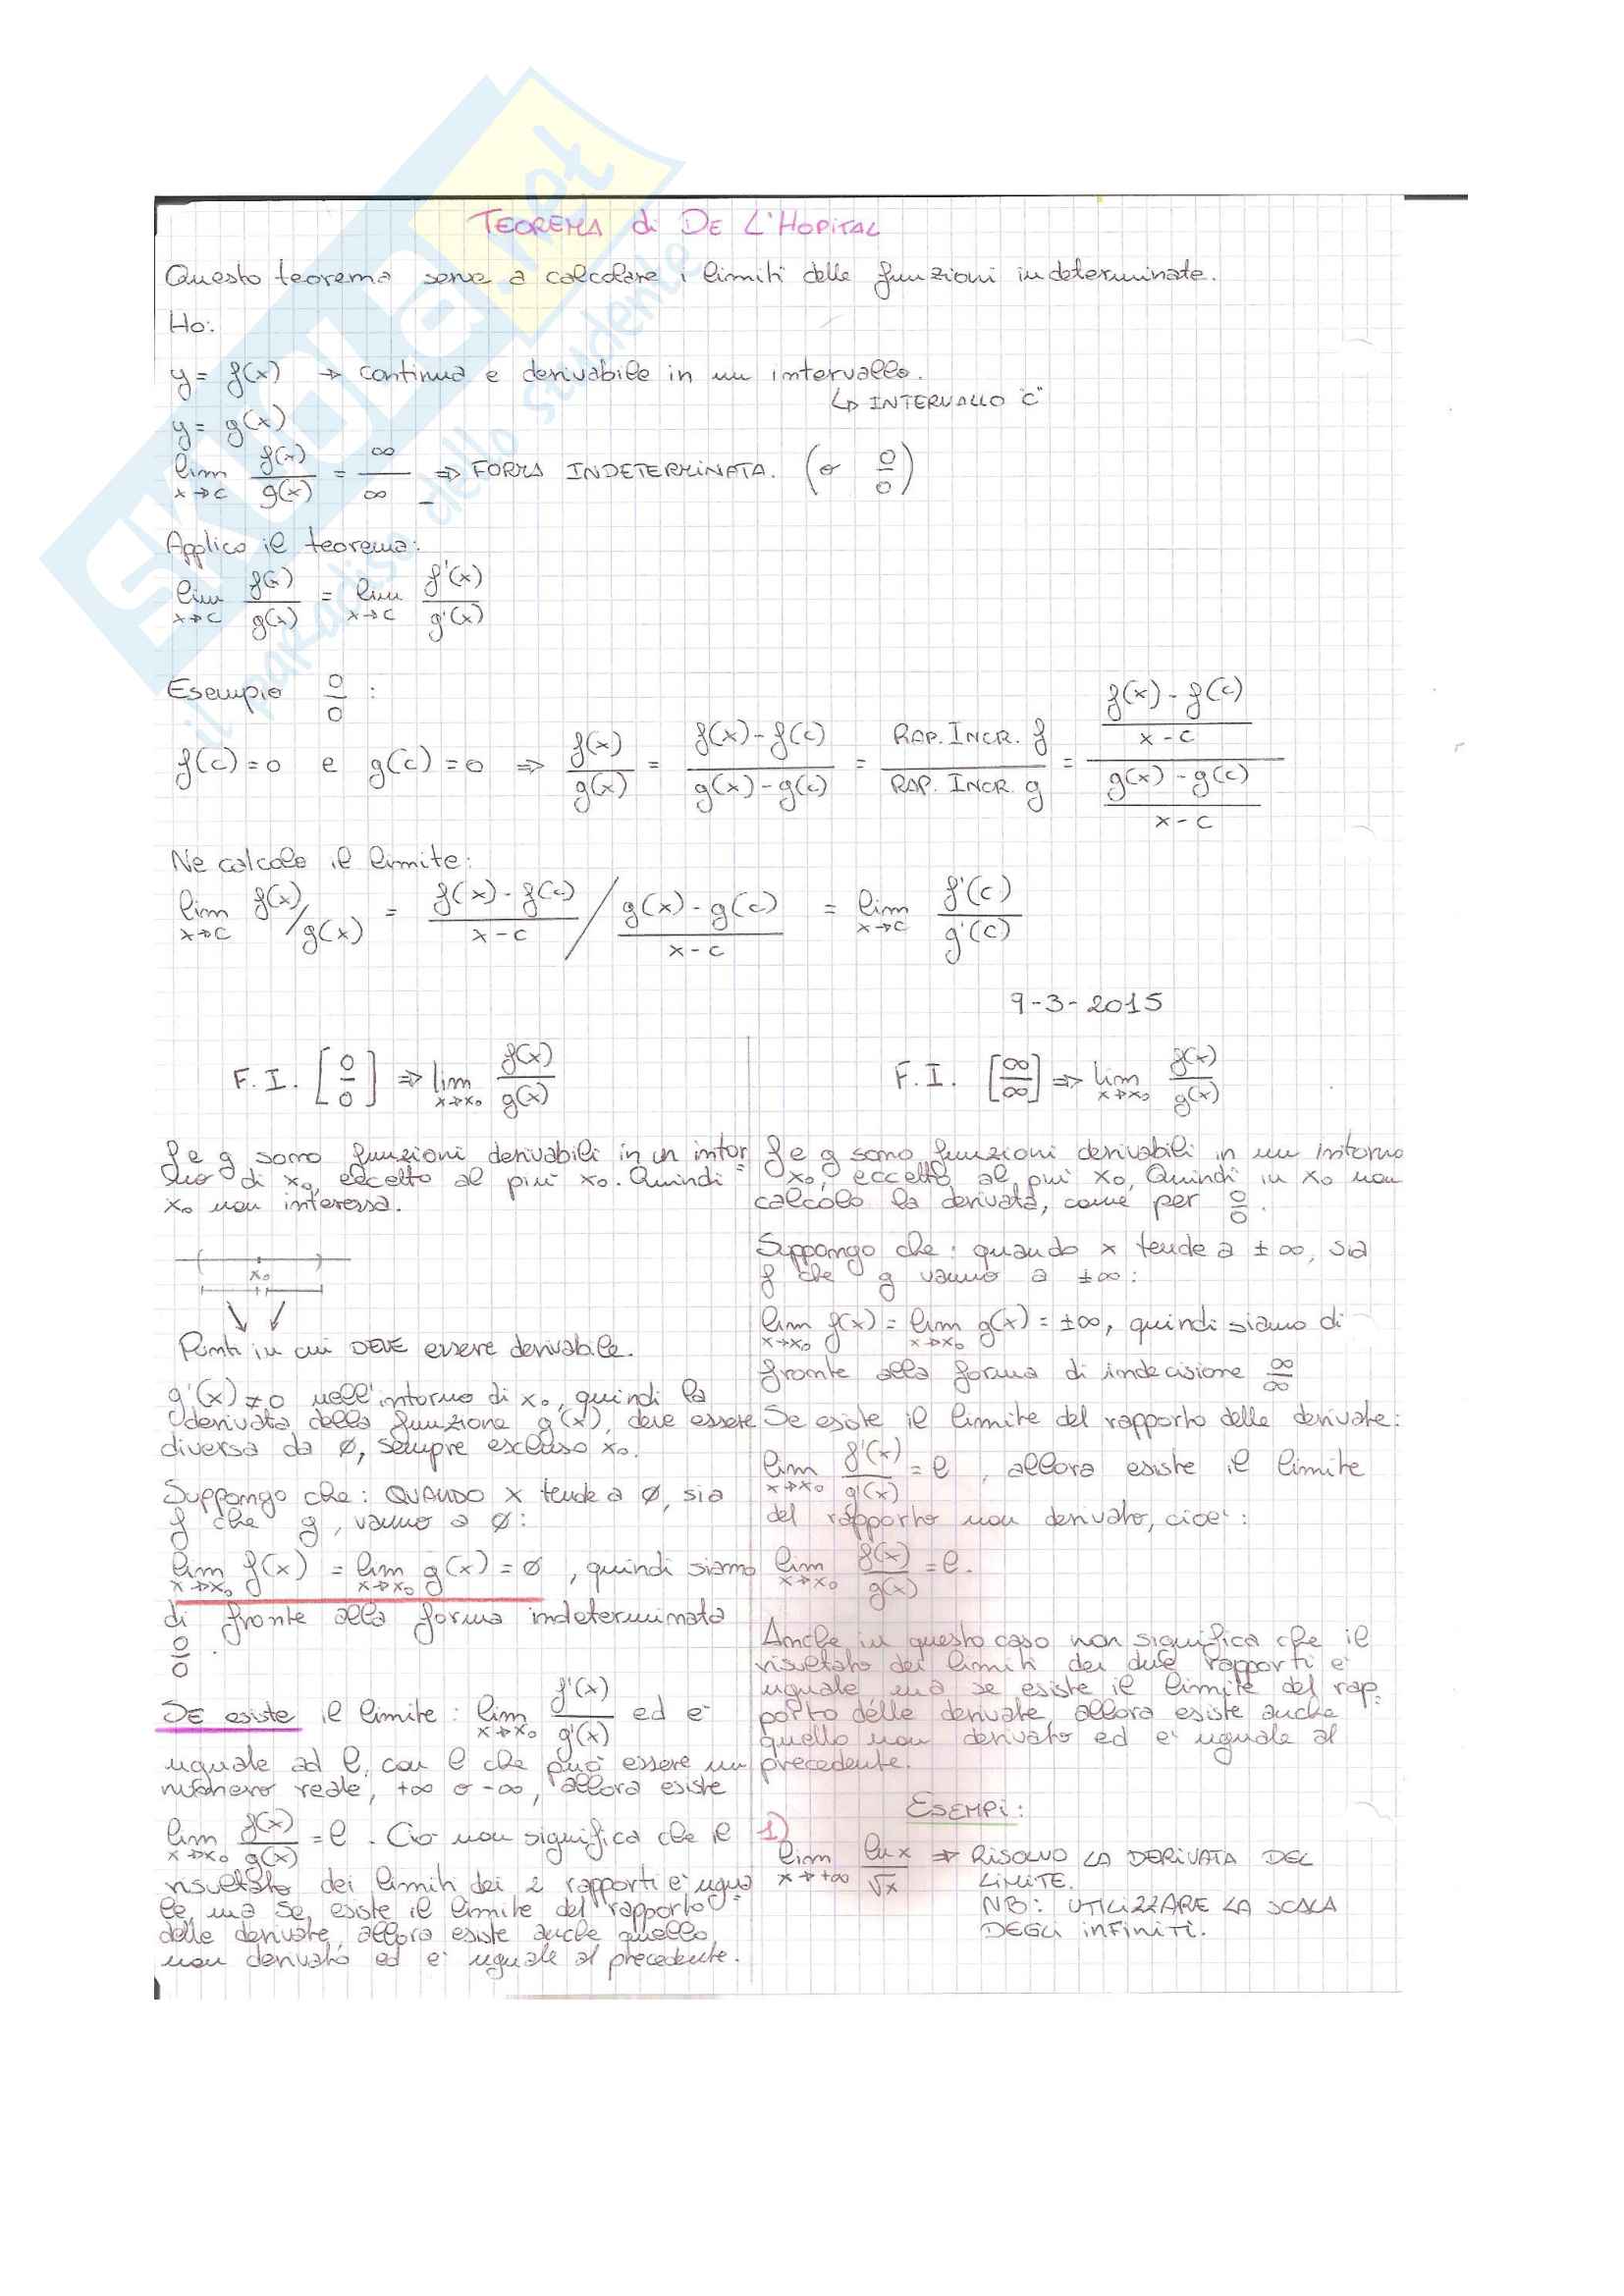 TEOREMA di DE L'HOPITAL
Questo teorema serve a calcolare i limiti delle funzioni indeterminate.
Ho:
y = f(x) → continua e derivabile in un intervallo.
↳ INTERVALLO "C"
y = g(x)
lim x→c f(x)/g(x) = ∞/∞ ⇒ FORMA INDETERMINATA. (o 0/0)
Applico il teorema:
lim x→c f(x)/g(x) = lim x→c f'(x)/g'(x)
Esempio 0/0 :
f(c)=0 e g(c)=0 ⇒ f(x)/g(x) = (f(x)-f(c))/(g(x)-g(c)) = RAP. INCR. f/RAP. INCR. g = ((f(x)-f(c))/(x-c))/((g(x)-g(c))/(x-c))
Ne calcolo il limite:
lim x→c f(x)/g(x) = (f(x)-f(c))/(x-c) / (g(x)-g(c))/(x-c) = lim x→c f'(c)/g'(c)
9-3-2015
F. I. [0/0] ⇒ lim x→x₀ f(x)/g(x)
f e g sono funzioni derivabili in un intor=
no di x₀, eccetto al più x₀. Quindi
x₀ non interessa.
x₀
Punti in cui DEVE essere derivabile.
g'(x) ≠ 0 nell'intorno di x₀, quindi la
derivata della funzione g(x), deve essere
diversa da ∅, sempre escluso x₀.
Suppongo che: QUANDO x tende a ∅, sia
f che g, vanno a ∅:
lim x→x₀ f(x) = lim x→x₀ g(x) = ∅, quindi siamo
di fronte alla forma indeterminata
0/0.
SE esiste il limite: lim x→x₀ f'(x)/g'(x) ed e'
uguale ad l, con l che può essere un
numero reale, +∞ o -∞, allora esiste
lim x→x₀ f(x)/g(x) = l. Ciò non significa che il
risultato dei limiti dei 2 rapporti e' ugua=
le, ma se, esiste il limite del rapporto
delle derivate, allora esiste anche quello,
non derivato ed e' uguale al precedente.
F. I. [∞/∞] ⇒ lim x→x₀ f(x)/g(x)
f e g sono funzioni derivabili in un intorno
x₀, eccetto al più x₀, Quindi in x₀ non
calcolo la derivata, come per 0/0.
Suppongo che: quando x tende a ±∞, sia
f che g vanno a ±∞:
lim x→x₀ f(x) = lim x→x₀ g(x) = ±∞, quindi siamo di
fronte alla forma di indecisione ∞/∞
Se esiste il limite del rapporto delle derivate:
lim x→x₀ f'(x)/g'(x) = l, allora esiste il limite
del rapporto non derivato, cioe':
lim x→x₀ f(x)/g(x) = l.
Anche in questo caso non significa che il
risultato dei limiti dei due rapporti e'
uguale ma se esiste il limite del rap=
porto delle derivate, allora esiste anche
quello non derivato ed e' uguale al
precedente.
ESEMPI:
1) lim x→+∞ ln x/√x ⇒ RISOLVO LA DERIVATA DEL
LIMITE.
NB: UTILIZZARE LA SCALA
DEGLI INFINITI.
SKUOLA.net
il paradiso dello studente